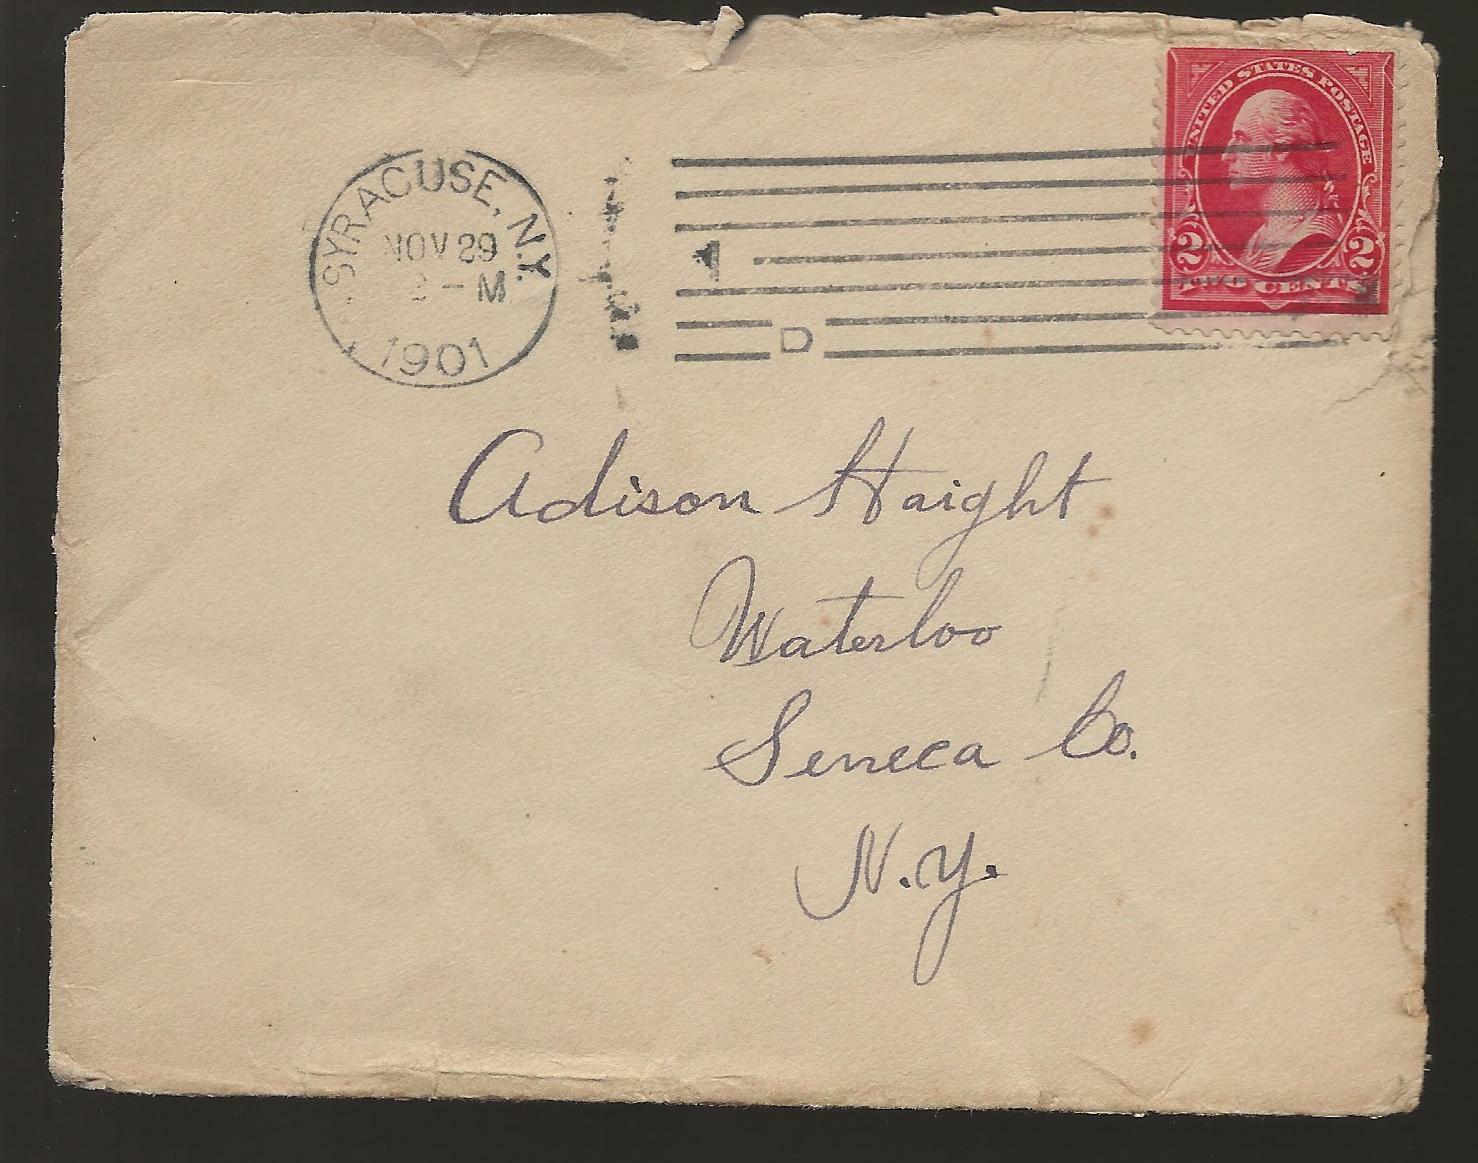 SYRACUSE, N.Y.
NOV 29
2 – M
1901
1
D
UNITED STATES POSTAGE
2 2
TWO CENTS
Adison Haight
Waterloo
Seneca Co.
N.Y.